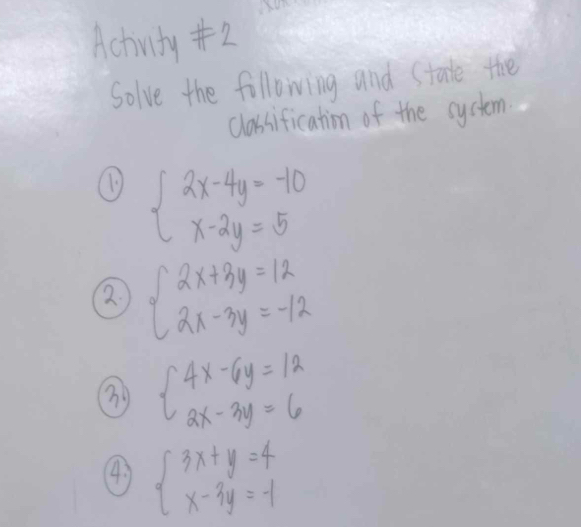 Activity #2
Solve the following and state the
classification of the system.
1. { 2x-4y = -10
x-2y = 5
2. { 2x+3y = 12
2x-3y = -12
3. { 4x-6y = 12
2x-3y = 6
4. { 3x+y = 4
x-3y = -1